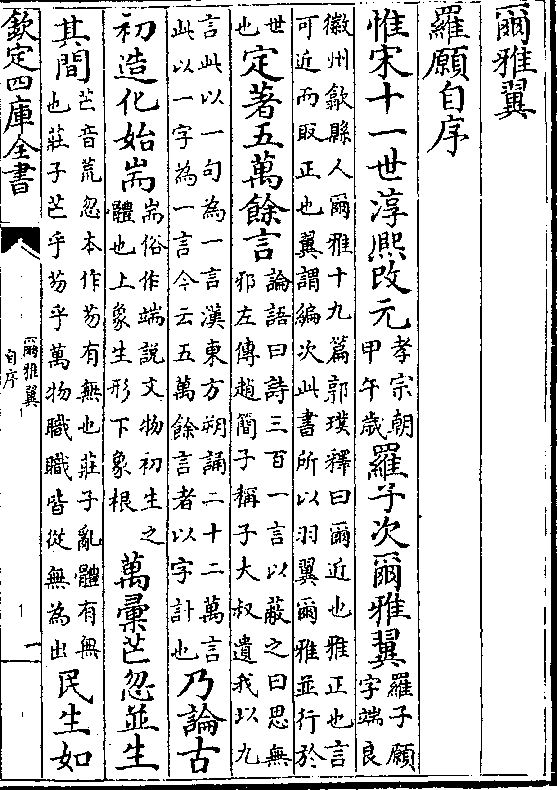 爾雅翼
羅願自序
惟宋十一世淳熙改元孝宗朝甲午歲羅子次爾雅翼羅子願字端良
徽州歙縣人爾雅十九篇郭璞釋曰爾近也雅正也言
可近而取正也翼謂編次此書所以羽翼爾雅並行於
世也定著五萬餘言論語曰詩三百一言以蔽之曰思無邪左傳趙簡子稱子大叔遺我以九
言此以一句為一言漢東方朔誦二十二萬言此以一字為一言今云五萬餘言者以字計也乃論古
初造化始耑耑俗作端說文物初生之體也上象生形下象根萬彚芒忽並生
其間芒音荒忽本作芴有無也莊子亂體有無也莊子芒乎芴乎萬物職職皆從無為出民生如
欽定四庫全書
爾雅翼
自序
一